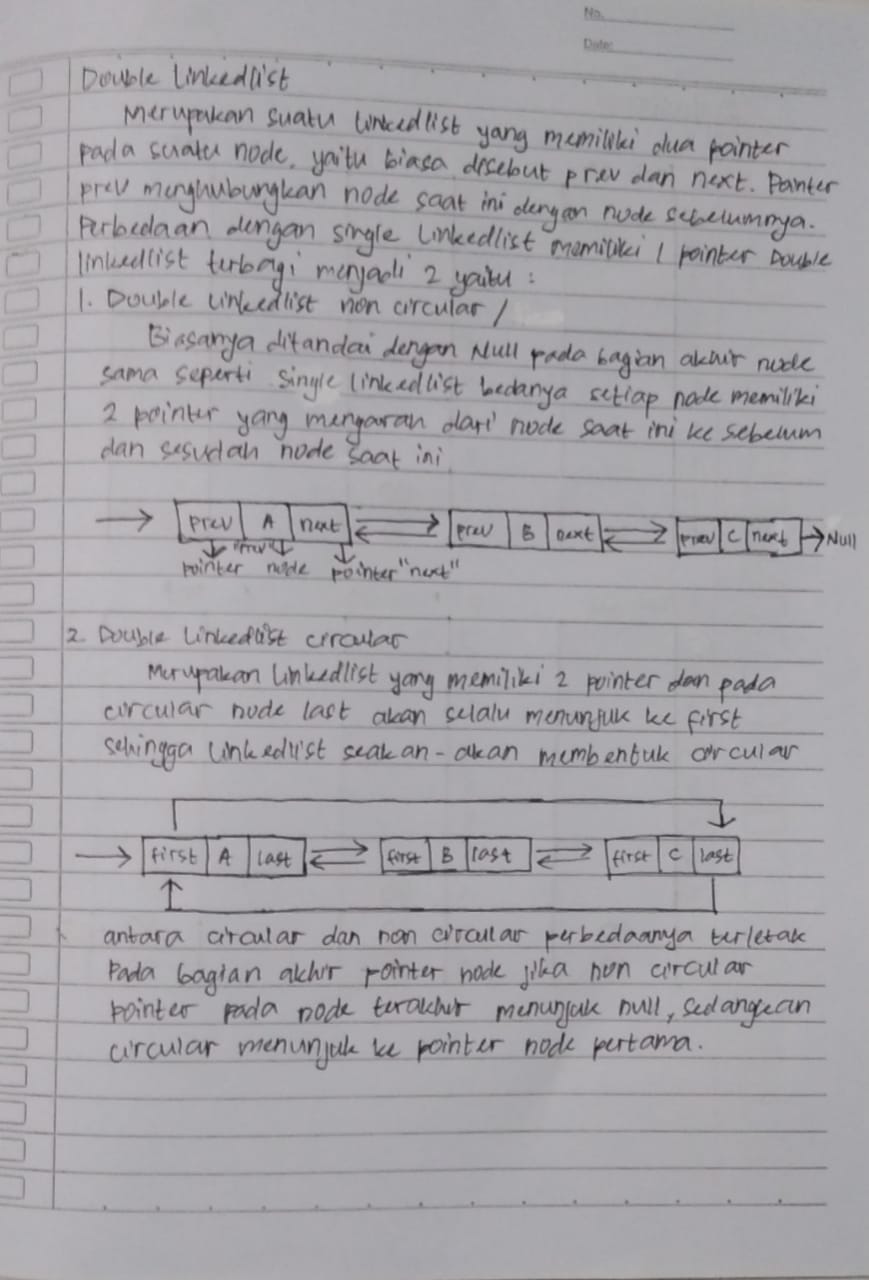 No.
Date:
Double Linkedlist
Merupakan suatu linkedlist yang memiliki dua pointer
pada suatu node, yaitu biasa disebut prev dan next. Pointer
prev menghubungkan node saat ini dengan node sebelumnya.
Perbedaan dengan single linkedlist memiliki 1 pointer Double
linkedlist terbagi menjadi 2 yaitu :
1. Double linkedlist non circular /
Biasanya ditandai dengan Null pada bagian akhir node
sama seperti single linkedlist bedanya setiap node memiliki
2 pointer yang mengarah dari node saat ini ke sebelum
dan sesudah node saat ini
prev A next prev B next prev C next Null
"Prev"
pointer node pointer "next"
2. Double Linkedlist circular
Merupakan linkedlist yang memiliki 2 pointer dan pada
circular node last akan selalu menunjuk ke first
sehingga linkedlist seakan-akan membentuk circular
first A last first B last first C last
antara circular dan non circular perbedaanya terletak
Pada bagian akhir pointer node jika non circular
pointer pada node terakhir menunjuk null, sedangkan
circular menunjuk ke pointer node pertama.